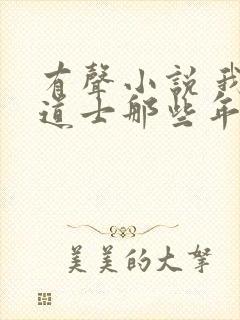 有聲小說我
道士那些年
美美的大拏